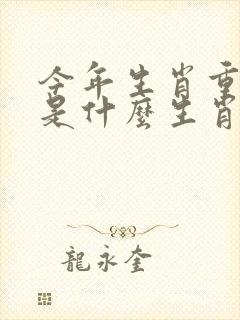 今年生肖重
是什麼生肖
龍永奎